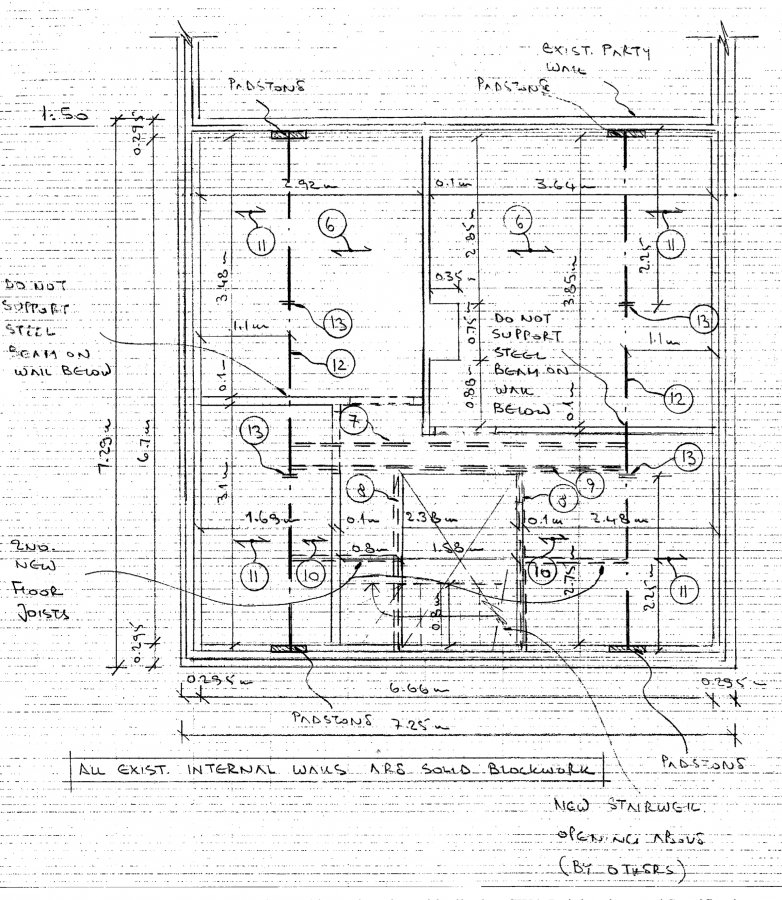 EXIST. PARTY
WALL
PADSTONE
PADSTONE
1:50
0.295
2.92m
0.1m
3.64m
11
6
6
11
2.85m
2.25
3.48m
3.85m
0.35
DO NOT
SUPPORT
STEEL
BEAM ON
WALL BELOW
DO NOT
SUPPORT
STEEL
BEAM ON
WALL
BELOW
13
13
1.1m
0.75m
1.1m
12
12
0.1m
0.88m
0.1m
7
13
13
7.29m
6.7m
3.1m
8
9
8
1.69m
0.1m
2.38m
0.1m
2.48m
2ND.
NEW
FLOOR
JOISTS
0.8m
1.88m
11
10
10
11
2.75m
2.25m
0.8m
0.295
0.295m
6.66m
0.295m
PADSTONE
7.25m
PADSTONE
ALL EXIST. INTERNAL WALLS ARE SOLID BLOCKWORK
NEW STAIRWELL
OPENING ABOVE
(BY OTHERS)